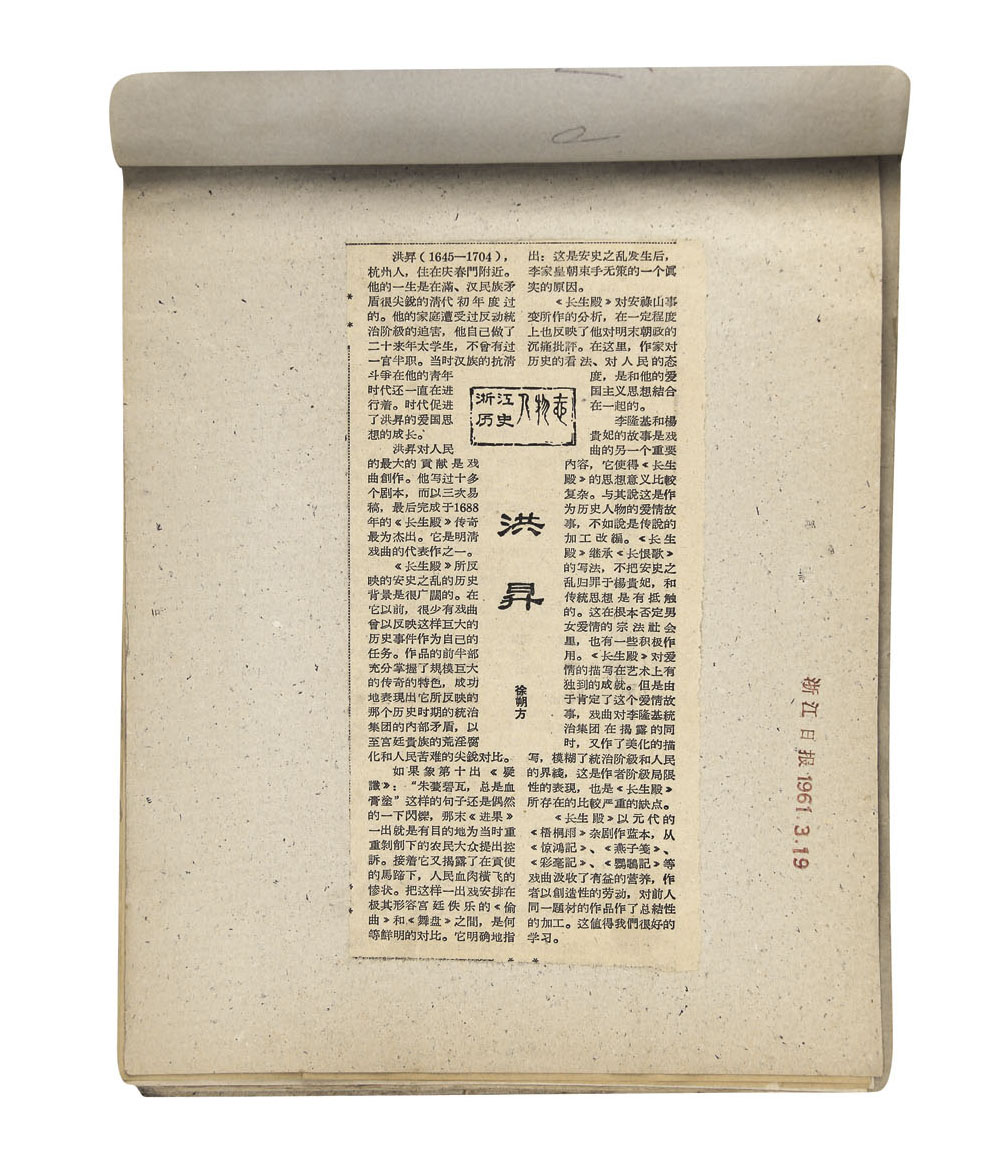 浙江
历史
人物志
洪昇
徐朔方
洪昇（1645—1704），
杭州人，住在庆春門附近。
他的一生是在滿、汉民族矛
盾很尖銳的清代初年度过
的。他的家庭遭受过反动統
治阶級的迫害，他自己做了
二十来年太学生，不曾有过
一官半职。当时汉族的抗清
斗爭在他的青年
时代还一直在进
行着。时代促进
了洪昇的爱国思
想的成长。
洪昇对人民
的最大的貢献是戏
曲創作。他写过十多
个剧本，而以三次易
稿，最后完成于1688
年的《长生殿》传奇
最为杰出。它是明清
戏曲的代表作之一。
《长生殿》所反
映的安史之乱的历史
背景是很广闊的。在
它以前，很少有戏曲
曾以反映这样巨大的
历史事件作为自己的
任务。作品的前半部
充分掌握了規模巨大
的传奇的特色，成功
地表現出它所反映的
那个历史时期的統治
集团的内部矛盾，以
至宮廷貴族的荒淫腐
化和人民苦难的尖銳对比。
如果象第十出《疑
讖》：“朱甍碧瓦，总是血
膏塗”这样的句子还是偶然
的一下閃耀，那末《进果》
一出就是有目的地为当时重
重剝削下的农民大众提出控
訴。接着它又揭露了在貢使
的馬蹄下，人民血肉橫飞的
惨状。把这样一出戏安排在
极其形容宮廷佚乐的《偷
曲》和《舞盘》之間，是何
等鮮明的对比。它明确地指
出：这是安史之乱发生后，
李家皇朝束手无策的一个眞
实的原因。
《长生殿》对安祿山事
变所作的分析，在一定程度
上也反映了他对明末朝政的
沉痛批評。在这里，作家对
历史的看法、对人民的态
度，是和他的爱
国主义思想結合
在一起的。
李隆基和楊
貴妃的故事是戏
曲的另一个重要
內容，它使得《长生
殿》的思想意义比較
复杂。与其說这是作
为历史人物的爱情故
事，不如說是传說的
加工改編。《长生
殿》继承《长恨歌》
的写法，不把安史之
乱归罪于楊貴妃，和
传統思想是有抵触
的。这在根本否定男
女爱情的宗法社会
里，也有一些积极作
用。《长生殿》对爱
情的描写在艺术上有
独到的成就。但是由
于肯定了这个爱情故
事，戏曲对李隆基統
治集团在揭露的同
时，又作了美化的描
写，模糊了統治阶級和人民
的界綫，这是作者阶級局限
性的表现，也是《长生殿》
所存在的比較严重的缺点。
《长生殿》以元代的
《梧桐雨》杂剧作蓝本，从
《惊鴻記》、《燕子笺》、
《彩毫記》、《鸚鵡記》等
戏曲汲收了有益的营养，作
者以創造性的劳动，对前人
同一題材的作品作了总結性
的加工。这值得我們很好的
学习。
浙江日报 1961.3.19